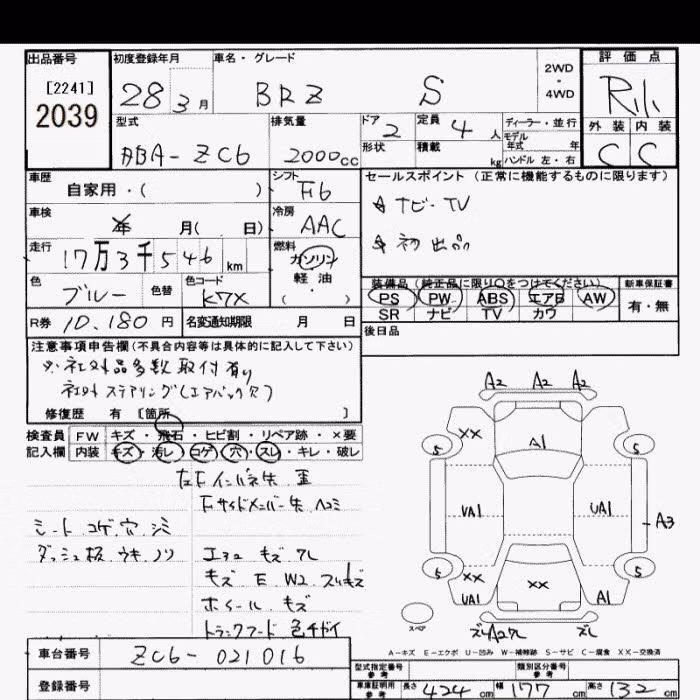 出品番号 初度登録年月 車名・グレード 評価点
[2241]
2039
28 3月 BRZ S 2WD・4WD R1
型式 排気量 ドア 2 定員 4人 ディーラー・並行 外装 内装
モデル年式 年
ABA-ZC6 2000cc 形状 積載 kg ハンドル 左・右 C C
車歴 シフト F6 セールスポイント (正常に機能するものに限ります)
自家用・( )
車検 年 月( 日) 冷房 AAC ナビ・TV
初出品
走行 17万3千546km 燃料 ガソリン 軽油 ( ・ )
装備品 (純正品に限り〇をつけてください) 新車保証書
色 ブルー 色替 色コード K7X PS PW ABS エアB AW 有・無
SR ナビ TV カワ
R券 10,180円 名変通知期限 月 日 後日品
注意事項申告欄(不具合内容等は具体的に記入して下さい)
※社外品多数取付有り
社外ステアリング(エアバック欠)
修復歴 有 [箇所 ]
検査員 FW キズ・飛石・ヒビ割・リペア跡・×要
記入欄 内装 キズ・汚レ・コゲ・穴・スレ・キレ・破レ
左Fインパネ先 歪
Fサイドメンバー先 ヘコミ
シート コゲ 穴 シミ
ダッシュ板 ウキ ノリ
エヨコ キズ ワレ
キズ E W2 スリキズ
ホイール キズ
トランクフード 色チガイ
A2 A2 A2
XX A1
5 5
UA1 UA1 A3
5 5
XX XX
UA1 A1
スペア ズレA2ワレ ズレ
A-キズ E-エクボ U-凹み W-補修跡 S-サビ C-腐食 XX-交換済
車台番号 ZC6-021016
型式指定番号 参考 類別区分番号 参考
登録番号 車庫証明用参考 長さ 424cm 幅 177cm 高さ 132cm